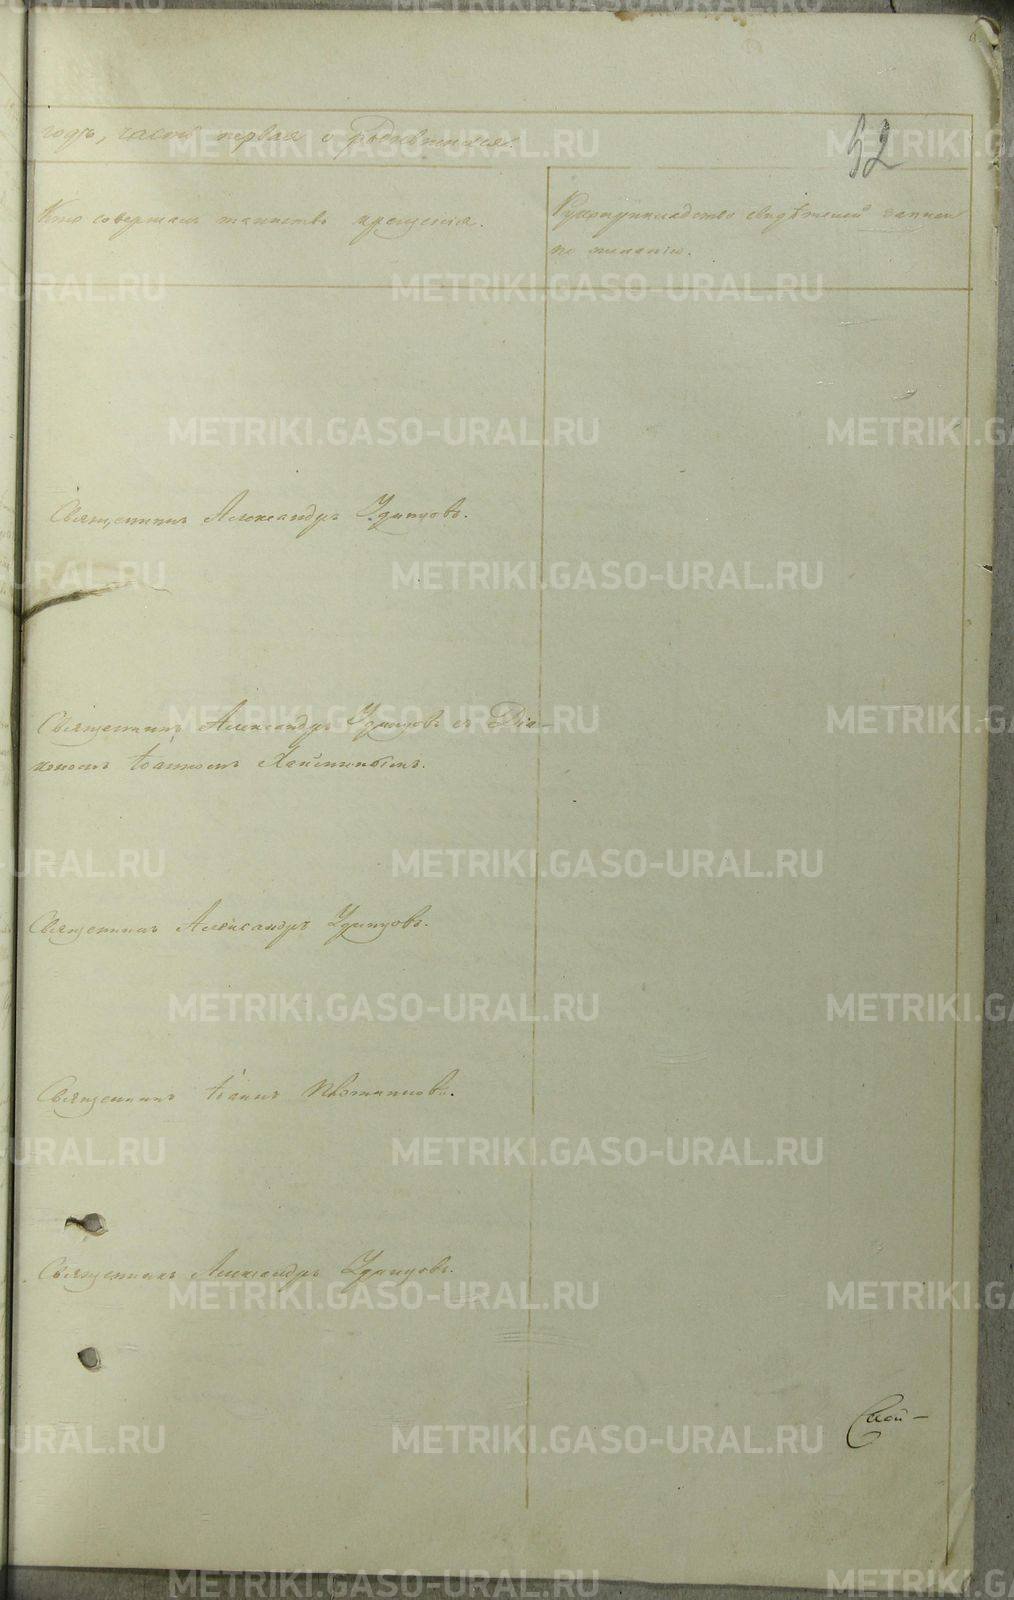 годъ, часть первая о родившихся.
52
Кто совершалъ таинство крещенія.
Рукоприкладство свидѣтелей записи
по желанію.
Священникъ Александръ Удинцовъ.
Священникъ Александръ Удинцовъ съ Діа-
кономъ Іоанномъ
Священникъ Александръ Удинцовъ.
Священникъ Іоаннъ
Священникъ Александръ Удинцовъ.
METRIKI.GASO-URAL.RU